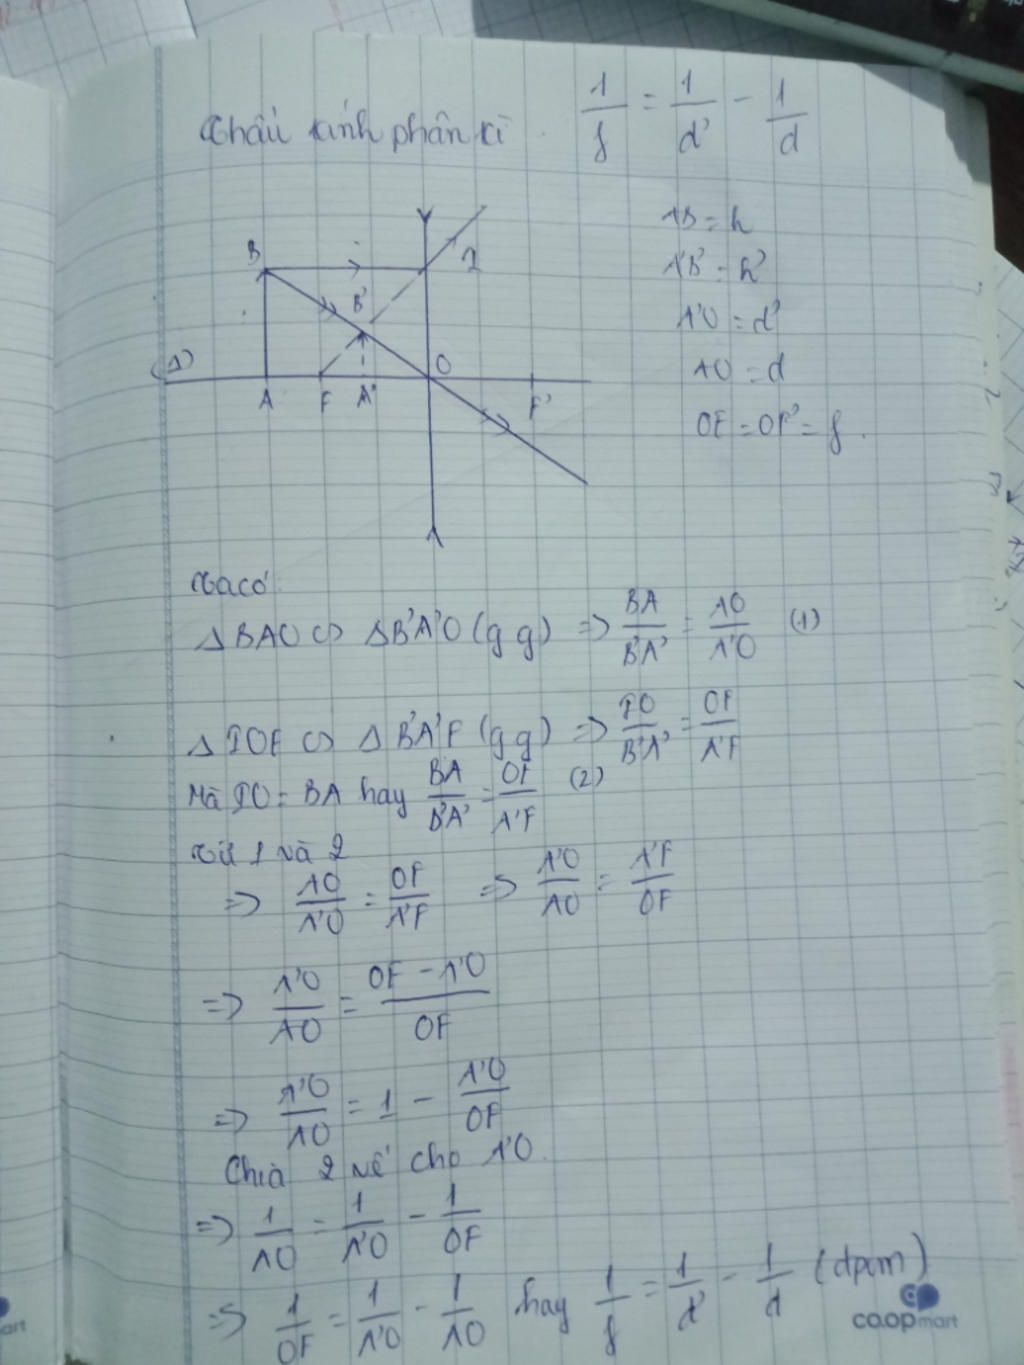 Thấu kính phân kì . 1/f = 1/d' - 1/d
AB = h
A'B' = h'
A'O = d'
AO = d
OF = OF' = f .
B
I
B'
(Δ)
A F A' O F'
Ta có:
Δ BAO ∽ Δ B'A'O (g g) => BA/B'A' = AO/A'O (1)
Δ IOF ∽ Δ B'A'F (g g) => IO/B'A' = OF/A'F
Mà IO = BA hay BA/B'A' = OF/A'F (2)
Từ 1 và 2
=> AO/A'O = OF/A'F => A'O/AO = A'F/OF
=> A'O/AO = OF - A'O/OF
=> A'O/AO = 1 - A'O/OF
Chia 2 vế cho A'O.
=> 1/AO = 1/A'O - 1/OF
=> 1/OF = 1/A'O - 1/AO hay 1/f = 1/d' - 1/d (dpcm)
co.opmart
art